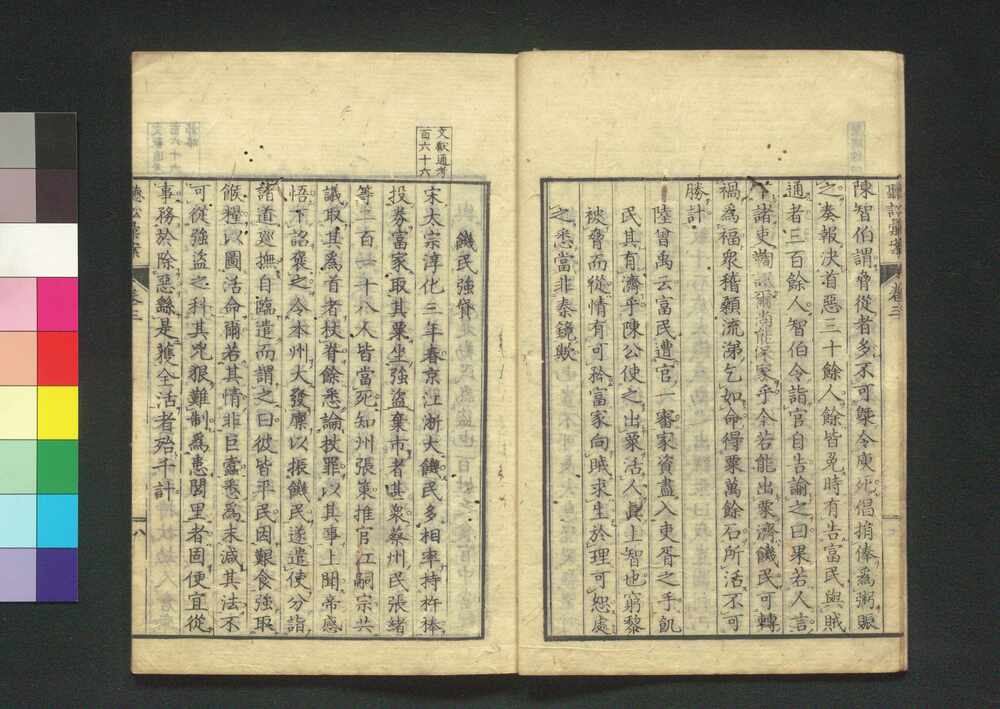 陳智伯謂脅從者多不可槩令庾死倡捐俸爲粥賑
之奏報決首惡三十餘人餘皆免時有告富民與賊
通者三百餘人智伯令詣官自告諭之曰果若人言
下諸吏鞫訊爾尚能保家乎今若能出粟濟饑民可轉
禍爲福衆稽顙流涕乞如命得粟萬餘石所活不可
勝計
陸曾禹云富民遭官一審家資盡入吏胥之手飢
民其有濟乎陳公使之出粟活人眞上智也窮黎
被脅而從情有可矜富家向賊求生於理可恕處
之悉當非秦鏡歟
文獻通考
百六十六
饑民強貸
宋太宗淳化三年春京江浙大饑民多相率持杵棒
投券富家取其粟坐強盜棄市者甚衆蔡州民張緒
等三百一十八人皆當死知州張策推官江嗣宗共
議取其爲首者杖脊餘悉論杖罪以其事上聞帝感
悟下詔褒之令本州大發廩以振饑民遂遣使分詣
諸道巡撫自臨遣而謂之曰彼皆平民因艱食強取
餱糧以圖活命爾若其情非巨蠹悉爲末減其法不
可從強盜之科其兇狠難制爲患閭里者固便宜從
事務於除惡繇是獲全活者殆千計
卷三
八